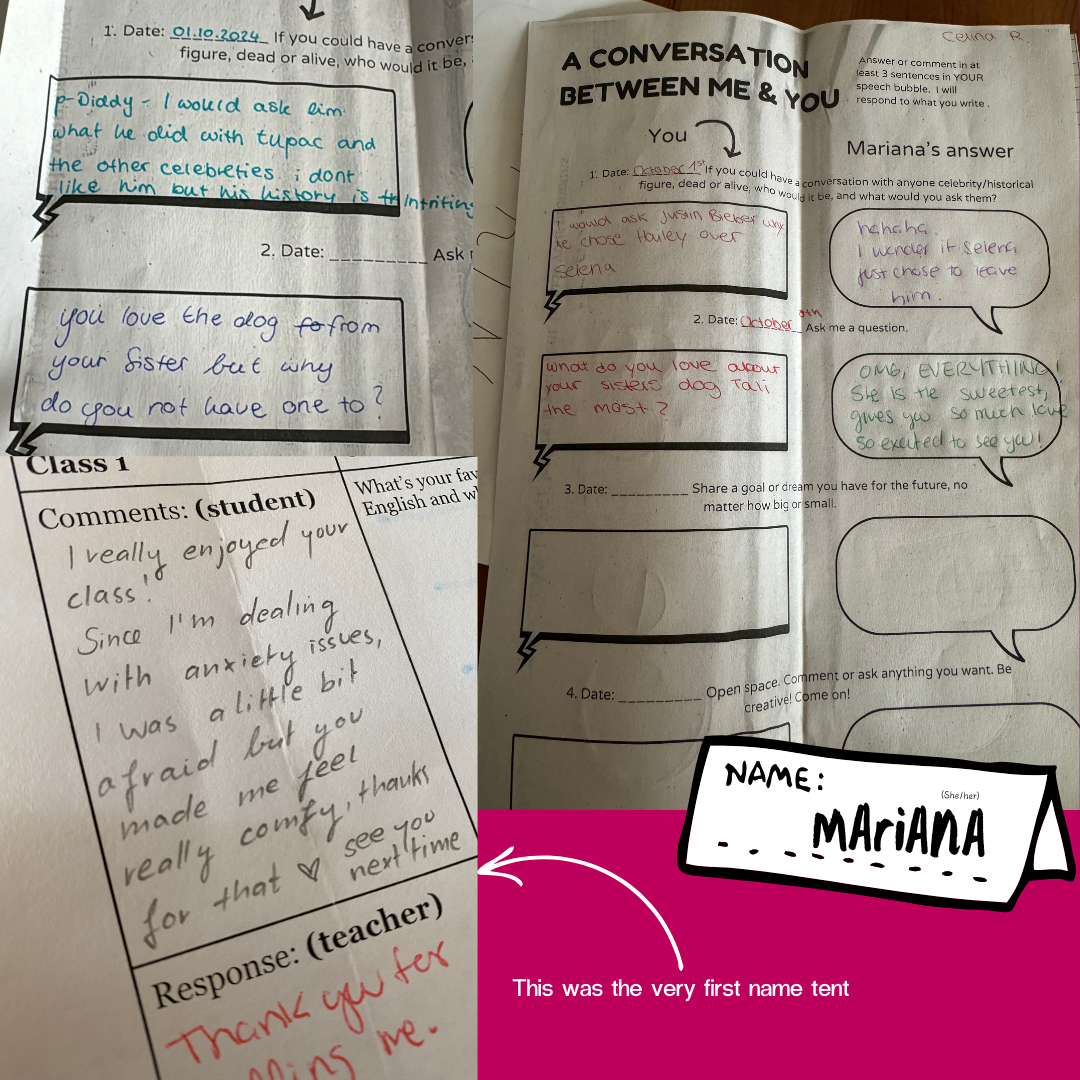 1. Date: 01.10.2024 If you could have a conver
figure, dead or alive, who would it be,
p-Diddy - I would ask him
what he did with tupac and
the other celebreties i dont
like him but his history is intriting
2. Date: _________ Ask
you love the dog from
your sister but why
do you not have one to?
Class 1
Comments: (student)
I really enjoyed your
class!
Since I'm dealing
with anxiety issues,
I was a little bit
afraid but you
made me feel
really comfy, thanks
for that ♡ see you
next time
What's your fav
English and w
Response: (teacher)
Thank you for
me.
Celina R.
A CONVERSATION
BETWEEN ME & YOU
Answer or comment in at
least 3 sentences in YOUR
speech bubble. I will
respond to what you write .
You
Mariana's answer
1. Date: October 1st If you could have a conversation with anyone celebrity/historical
figure, dead or alive, who would it be, and what would you ask them?
I would ask Justin Bieber why
he chose Hailey over
Selena
hahaha.
I wonder if Selena
just chose to leave
him.
2. Date: October 8th Ask me a question.
what do you love about
your sisters dog Tali
the most?
OMG, EVERYTHING!
She is the sweetest,
gives you so much love
so excited to see you!
3. Date: _________ Share a goal or dream you have for the future, no
matter how big or small.
4. Date: _________ Open space. Comment or ask anything you want. Be
creative! Come on!
NAME:
(She/her)
MAriANA
This was the very first name tent